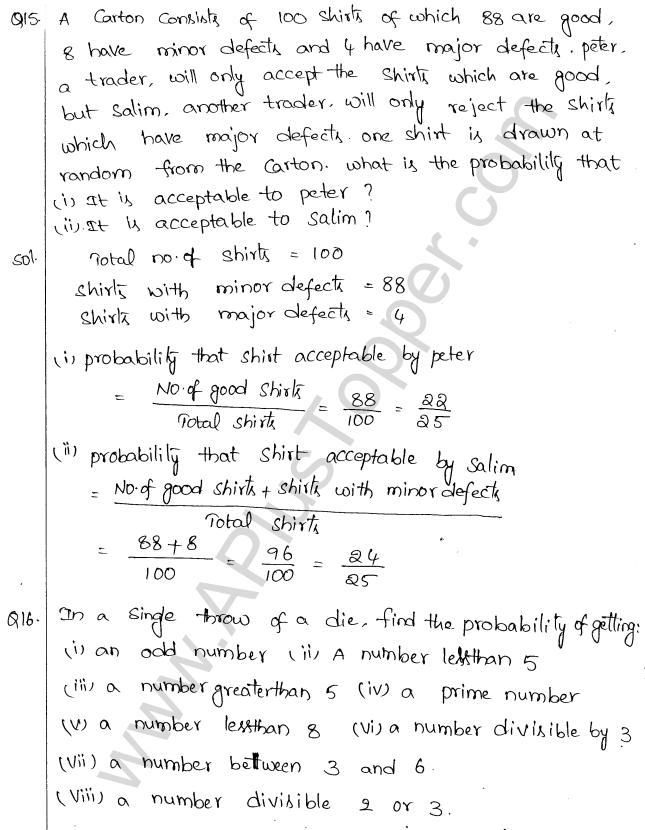 Q15. A Carton Consists of 100 Shirts of which 88 are good,
8 have minor defects and 4 have major defects. peter.
a trader, will only accept the Shirts which are good,
but Salim, another trader, will only reject the shirts
which have major defects. one shirt is drawn at
random from the Carton. what is the probability that
(i) It is acceptable to peter ?
(ii). It is acceptable to Salim ?
Sol. Total no. of Shirts = 100
Shirts with minor defects = 88
Shirts with major defects = 4
(i) probability that shirt acceptable by peter
= No. of good Shirts / Total shirts = 88/100 = 22/25
(ii) probability that Shirt acceptable by Salim
= No. of good shirts + shirts with minor defects / Total shirts
= 88+8/100 = 96/100 = 24/25
Q16. In a Single throw of a die, find the probability of getting:
(i) an odd number (ii) A number lessthan 5
(iii) a number greaterthan 5 (iv) a prime number
(v) a number lessthan 8 (vi) a number divisible by 3
(vii) a number between 3 and 6.
(viii) a number divisible 2 or 3.
www.APlusTopper.com